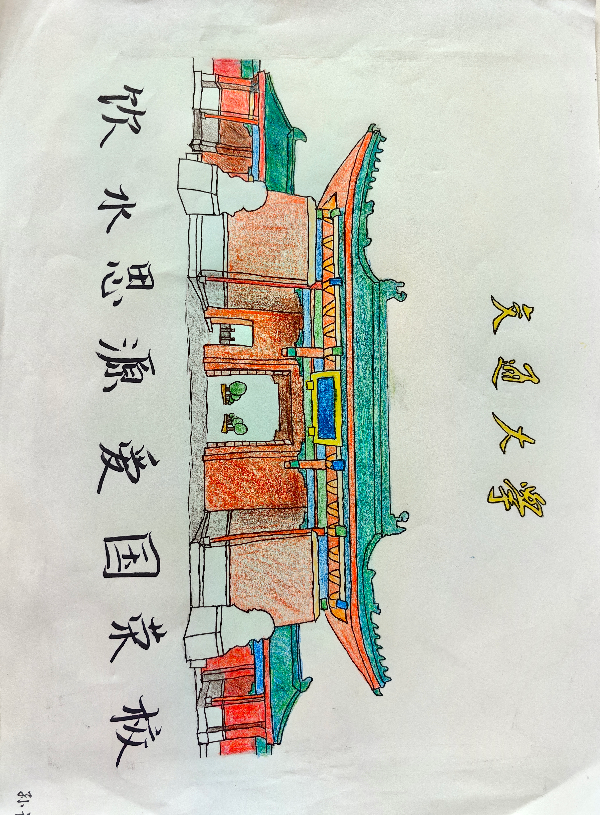 交通大学
饮水思源爱国荣校
孙